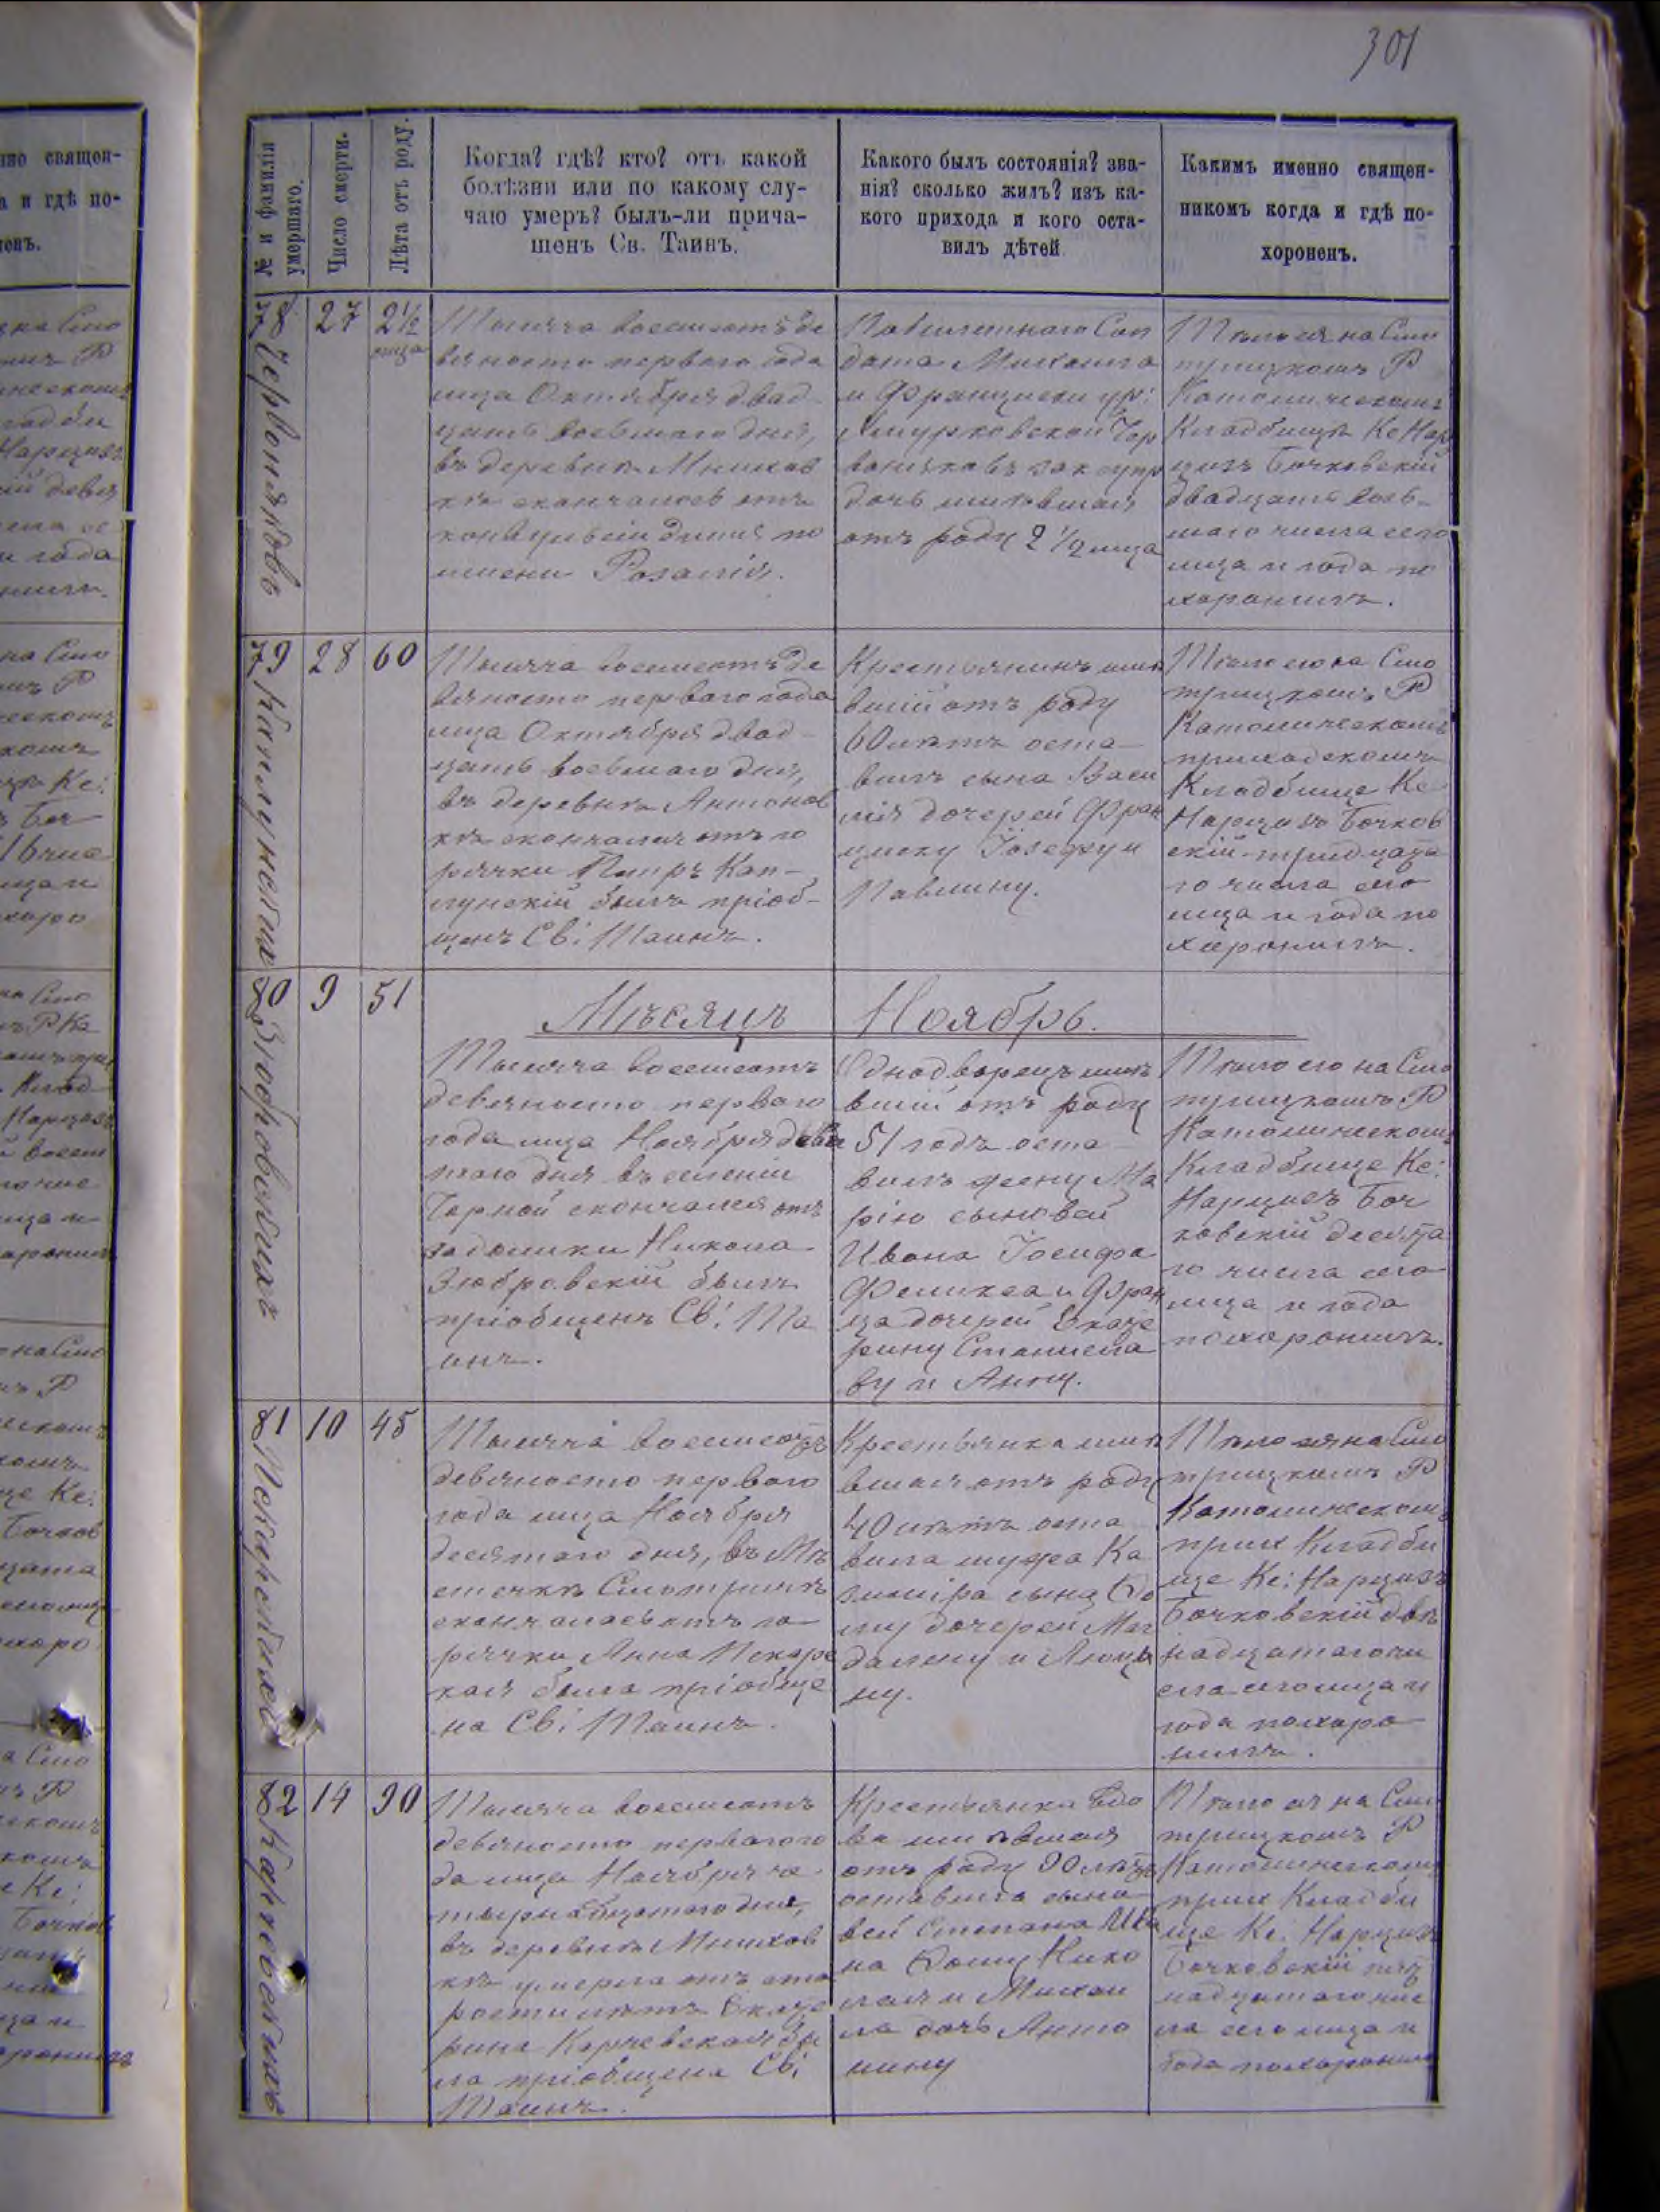 301
№ и фамилія
умершаго.
Число смерти.
Лѣта отъ роду.
Когда? гдѣ? кто? отъ какой
болѣзни или по какому слу-
чаю умеръ? былъ-ли прича-
щенъ Св. Таинъ.
Какого былъ состоянія? зва-
нія? сколько жилъ? изъ ка-
кого прихода и кого оста-
вилъ дѣтей
Какимъ именно священ-
никомъ когда и гдѣ по-
хороненъ.
78
27
2½
мца
Тысяча восемсотъ де
вяносто первого года
мца Октября двад-
цать восьмаго дня,
въ деревни Мнихов
кѣ скончалось отъ
конвульсіи дитя по
имени Розалія.
дата Михаила
и Франциски ур:
дочь жившая
отъ роду 2 1/2 мца
Тѣло ея на Смо
трицкомъ Р
Католическомъ
Кладбищѣ Кс Нар
цизъ Бочковскій
двадцать вось-
маго числа сего
мца и года по
хоронилъ.
79
28
60
Тысяча восемсотъ де
вяносто первого года
мца Октября двад-
цать восьмаго дня,
въ деревнѣ Антонов
кѣ скончался отъ го
рячки Петръ Кап-
лунскій былъ пріоб-
щенъ Св: Таинъ.
Крестьянинъ жив
вшій отъ роду
60 лѣтъ оста-
вилъ сына Васи
лія дочерей Фран
циску Іозефу и
Павлину.
Тѣло его на Смо
трицкомъ Р
Католическомъ
приходскомъ
Кладбище Кс
Нарцизъ Бочков
скій тридцата
го числа сего
мца и года по
хоронилъ.
80 Зюбровскій
9
51
Мѣсяцъ Ноябрь.
Тысяча восемсотъ
девяносто первого
года мца Ноября девя
таго дня въ селеніи
Чорной скончался отъ
задышки Никола
Зюбровскій былъ
пріобщенъ Св: Та
инъ.
Однодворецъ жив
вшій отъ роду
51 годъ оста-
вилъ жену Ма
рію сыновей
Ивана Іосифа
Феликса и Фран
ца дочерей Екате
рину Станисла
ву и Анну.
Тѣло его на Смо
трицкомъ Р
Католическомъ
Кладбище Кс:
Нарцизъ Боч
ковскій десята
го числа сего
мца и года
похоронилъ.
81
10
45
Тысяча восемсотъ
девяносто первого
года мца Ноября
десятаго дня, въ Мѣ
стечкѣ Смотричѣ
скончалась отъ го
рячки Анна Пекарс
кая была пріобще
на Св: Таинъ.
Крестьянка жив
вшая отъ роду
40 лѣтъ оста
вила мужа Ка
зимира сына Фо
му дочерей Маг
далену и Люци
ну.
Тѣло ея на Смо
трицкомъ Р
Католическомъ
прих Кладби
ще Кс: Нарцизъ
Бочковскій двѣ
надцатаго чи
сла сего мца и
года похоро
нилъ.
82
14
90
Тысяча восемсотъ
девяносто первого го
да мца Ноября че
тырнадцатаго дня,
въ деревнѣ Мнихов
кѣ умерла отъ ста
рости лѣтъ Екате
рина Карчевская бы
ла пріобщена Св:
Таинъ.
Крестьянка вдо
ва жившая
отъ роду 90 лѣтъ
оставила сыно
вей Степана Ива
на Фому Нико
лая и Михаи
ла дочь Анто
нину
Тѣло ея на Смо
трицкомъ Р
Католическомъ
прих Кладби
ще Кс: Нарцизъ
Бочковскій пят
надцатаго чис
ла сего мца и
года похоронилъ